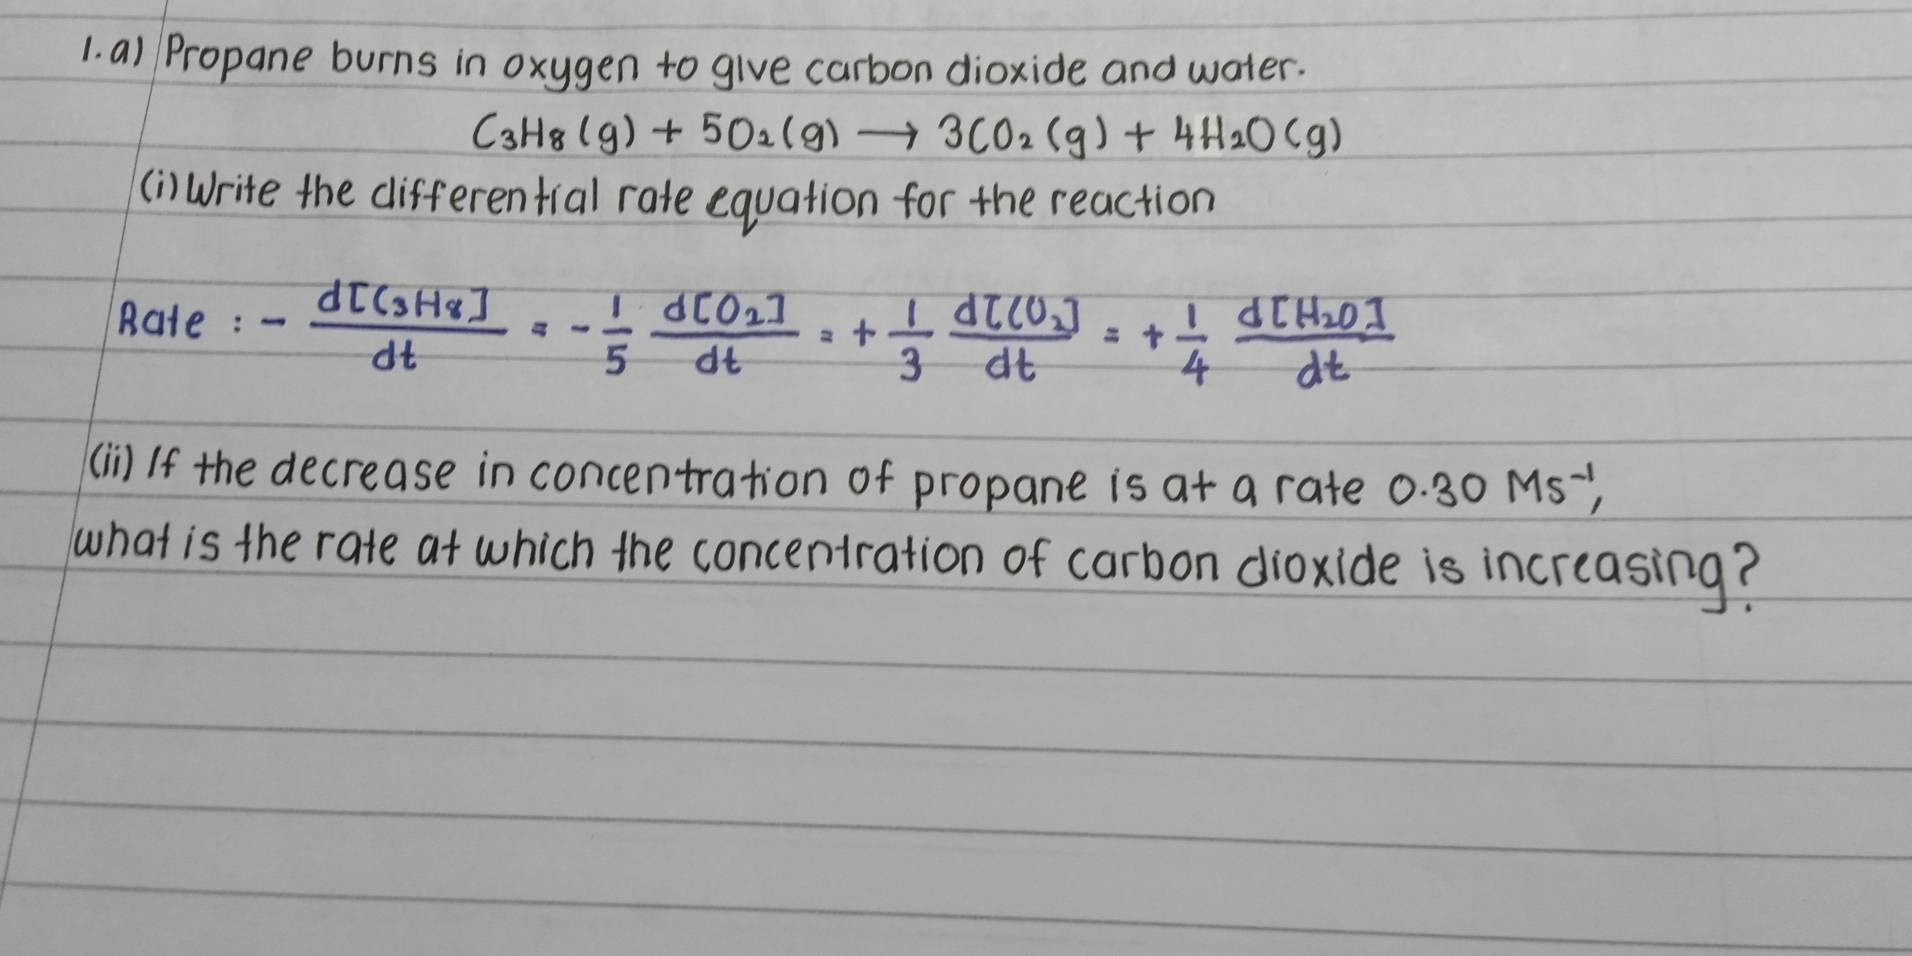 1. a) Propane burns in oxygen to give carbon dioxide and water.
C₃H₈ (g) + 5O₂ (g) → 3CO₂ (g) + 4H₂O (g)
(i) Write the differential rate equation for the reaction
Rate : - d[C₃H₈]/dt = - 1/5 d[O₂]/dt = + 1/3 d[CO₂]/dt = + 1/4 d[H₂O]/dt
(ii) If the decrease in concentration of propane is at a rate 0.30 Ms⁻¹,
what is the rate at which the concentration of carbon dioxide is increasing?